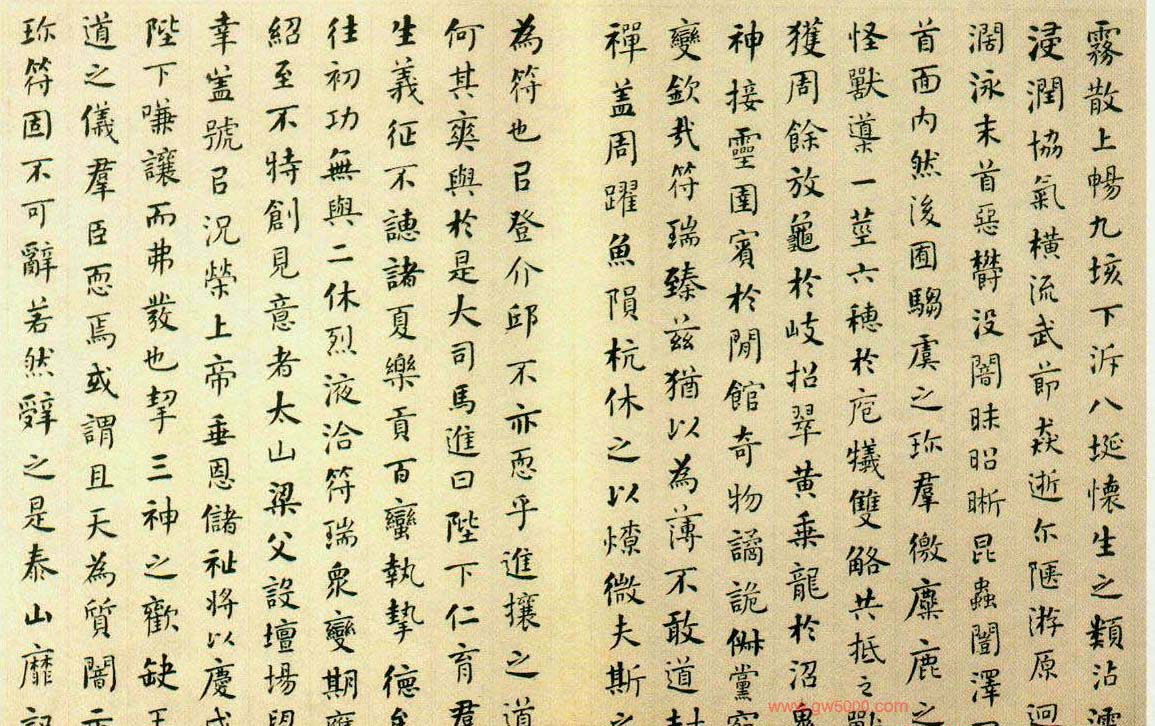 霧散上暢九垓下泝八埏懷生之類沾濡
浸潤協氣橫流武節猋逝尔陿游原迥
濶泳末首惡欝没闇昧昭晰昆蟲闓澤
首面内然後囿騶虞之珎羣徼麋鹿之
怪獸導一莖六穗於庖犧雙觡共抵之獸
獲周餘放龜於岐招翠黄乗龍於沼鬼
神接靈圉賓於閒館奇物譎詭俶黨窮
變欽哉符瑞臻兹猶以為薄不敢道封
禪盖周躍魚隕杭休之以燎微夫斯之
為符也㠯登介邱不亦恧乎進攘之道
何其爽與於是大司馬進曰陛下仁育羣
生義征不譓諸夏樂貢百蠻執摯德
往初功無與二休烈液洽符瑞衆變期應
紹至不特創見意者太山梁父設壇場望
幸盖號㠯况榮上帝垂恩儲祉將以慶成
陛下嗛讓而弗發也挈三神之歡缺王
道之儀羣臣恧焉或謂且天為質闇示
珎符固不可辭若然辭之是泰山靡記
www.gw5000.com